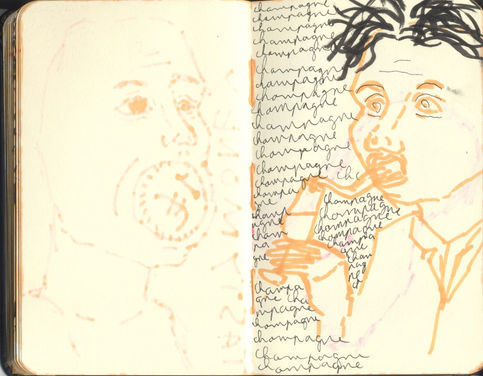 champagne
champagne
champagne
champagne
champagne
champagne
champagne
champagne
champagne
champagne
champagne
champagne
champagne
champagne cha
champa
gne
champ
agne
cham
pa
gne
champagne
champagne
champagne
champagne
champagne
cham
pag
ne
champa
gne cha
mpagne
champagne
champagne
champagne
champagne